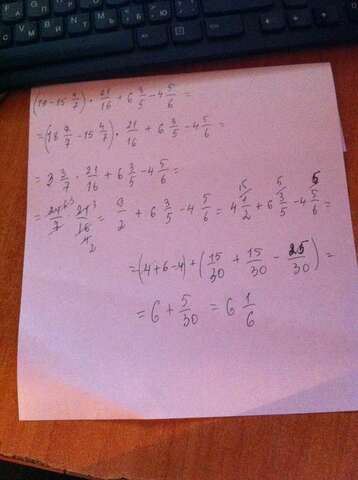 (19-15 4/7) · 21/16 + 6 3/5 - 4 5/6 =
= (18 7/7 - 15 4/7) · 21/16 + 6 3/5 - 4 5/6 =
= 3 3/7 · 21/16 + 6 3/5 - 4 5/6 =
= 24/7 · 21/16 = 9/2 + 6 3/5 - 4 5/6 = 4 1/2 + 6 3/5 - 4 5/6 =
= (4+6-4) + (15/30 + 15/30 - 25/30) =
= 6 + 5/30 = 6 1/6